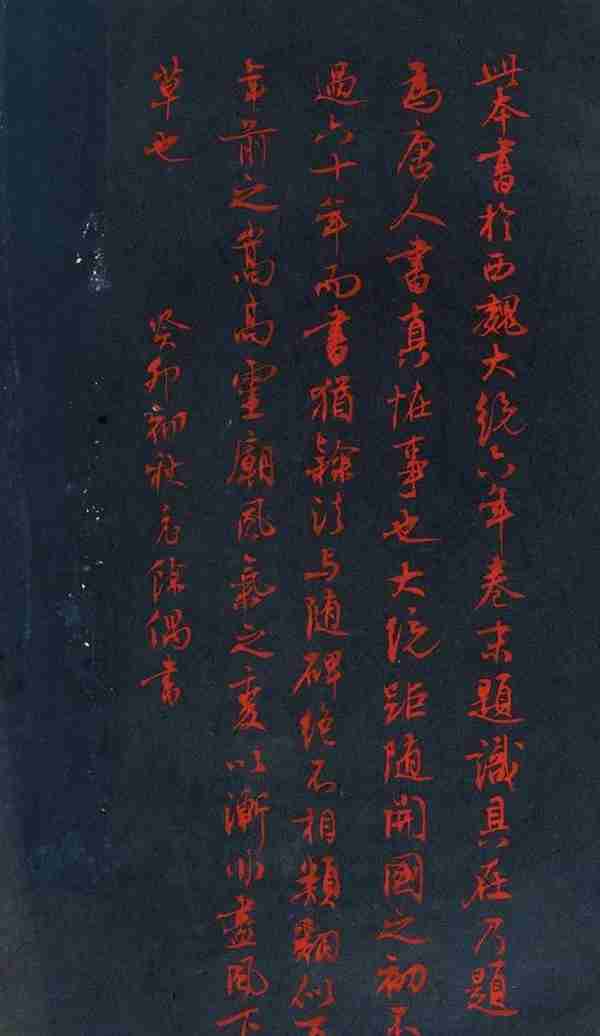 此本書於西魏大統六年卷末題識具在乃題
為唐人書真怪事也大統距随開國之初不
過六十年而書猶隸法与随碑絕不相類翻似百
年前之嵩高靈廟風氣之變以漸非盡風下
草也 癸卯初秋餘偶書